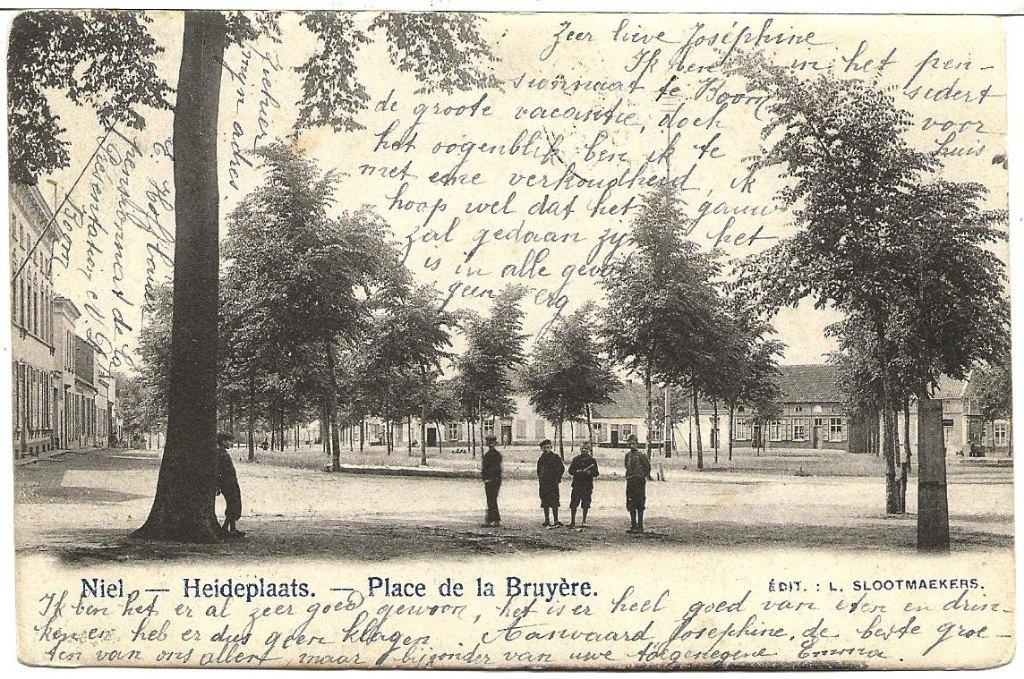 Zeer lieve Joséphine
Ik ben in het pen-
sionnaat te Boom sedert
de groote vacantie, doch voor
het oogenblik ben ik te huis
met eene verkoudheid, ik
hoop wel dat het gauw
zal gedaan zyn, het
is in alle geval
geen erg
Ziehier
myn adres
Pensionnat de la
Présentation
Boom
Niel. — Heideplaats. — Place de la Bruyère.
ÉDIT. : L. SLOOTMAEKERS.
Ik ben het er al zeer goed gewoon, het is er heel goed van eten en drin-
ken en heb er dus geen klagen. Aanvaard Josephine, de beste groe-
ten van ons allen maar bijzonder van uwe toegenegene Emma.